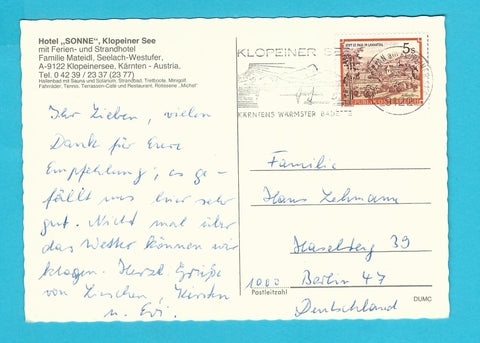 Hotel „SONNE", Klopeiner See
mit Ferien- und Strandhotel
Familie Mateidl, Seelach-Westufer,
A-9122 Klopeinersee, Kärnten - Austria.
Tel. 0 42 39 / 23 37 (23 77)
Hallenbad mit Sauna und Solarium, Strandbad, Tretboote, Minigolf,
Fahrräder, Tennis, Terrassen-Cafe und Restaurant, Rotisserie „Michel"
Ihr Lieben, vielen
Dank für Eure
Empfehlung, es ge-
fällt uns hier sehr
gut. Nicht mal über
das Wetter können wir
klagen. Herzl. Grüße
von Lieschen, Kirsten
u. Evi.
KLOPEINER SEE
KÄRNTENS WÄRMSTER BADESEE
STIFT ST. PAUL IM LAVANTTAL
5 S
REPUBLIK ÖSTERREICH
Familie
Hans Lehmann
Haselsteig 39
1000 Berlin 47
Postleitzahl
Deutschland
DUMC